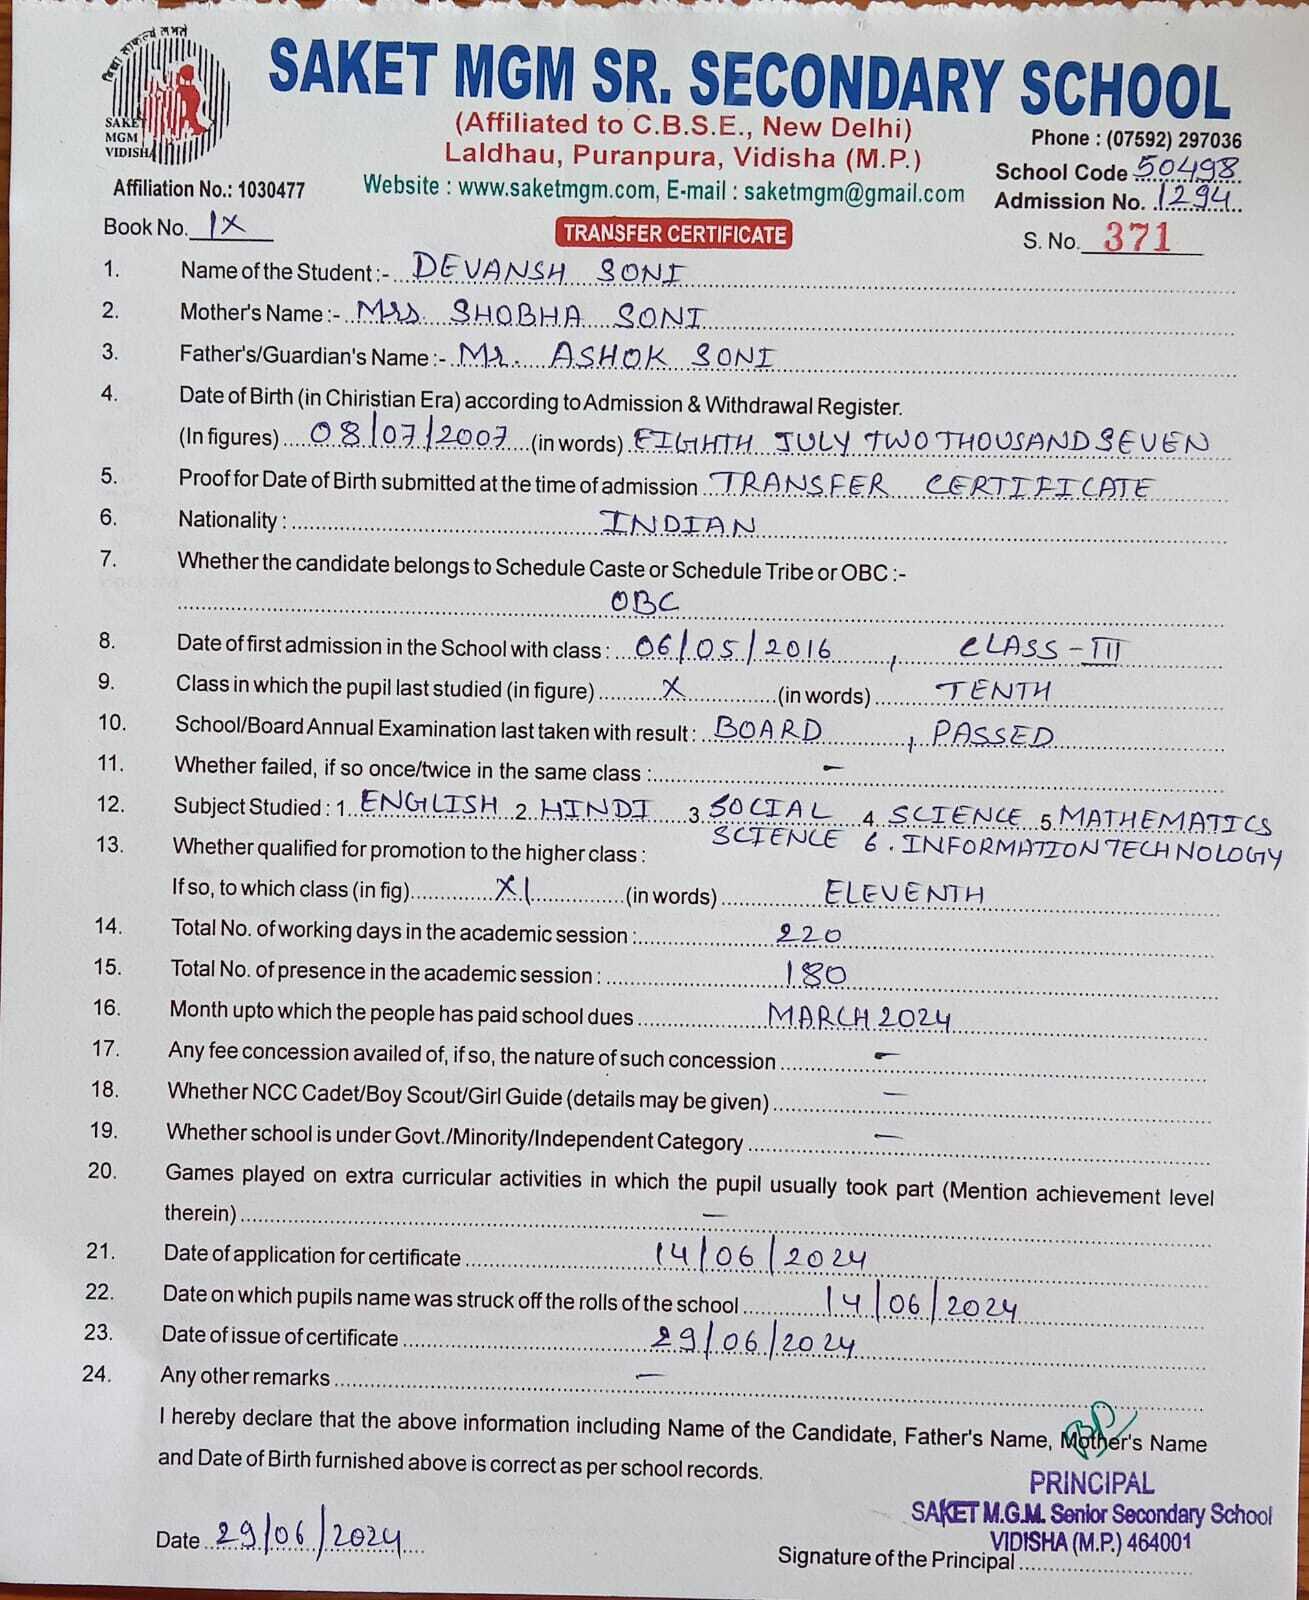 विद्या साकल्यं लभते
SAKET MGM SR. SECONDARY SCHOOL
SAKET
MGM
VIDISHA
(Affiliated to C.B.S.E., New Delhi)
Phone : (07592) 297036
Laldhau, Puranpura, Vidisha (M.P.)
School Code 50498
Affiliation No.: 1030477
Website : www.saketmgm.com, E-mail : saketmgm@gmail.com
Admission No. 1294
Book No. IX
TRANSFER CERTIFICATE
S. No. 371
1. Name of the Student :- DEVANSH SONI
2. Mother's Name :- Mrs. SHOBHA SONI
3. Father's/Guardian's Name :- Mr. ASHOK SONI
4. Date of Birth (in Chiristian Era) according to Admission & Withdrawal Register.
(In figures) 08/07/2007 (in words) EIGHTH JULY TWO THOUSAND SEVEN
5. Proof for Date of Birth submitted at the time of admission TRANSFER CERTIFICATE
6. Nationality : INDIAN
7. Whether the candidate belongs to Schedule Caste or Schedule Tribe or OBC :-
OBC
8. Date of first admission in the School with class : 06/05/2016 , CLASS - III
9. Class in which the pupil last studied (in figure) X (in words) TENTH
10. School/Board Annual Examination last taken with result : BOARD , PASSED
11. Whether failed, if so once/twice in the same class : -
12. Subject Studied : 1. ENGLISH 2. HINDI 3. SOCIAL 4. SCIENCE 5. MATHEMATICS
SCIENCE 6. INFORMATION TECHNOLOGY
13. Whether qualified for promotion to the higher class :
If so, to which class (in fig) XI (in words) ELEVENTH
14. Total No. of working days in the academic session : 220
15. Total No. of presence in the academic session : 180
16. Month upto which the people has paid school dues MARCH 2024
17. Any fee concession availed of, if so, the nature of such concession -
18. Whether NCC Cadet/Boy Scout/Girl Guide (details may be given) -
19. Whether school is under Govt./Minority/Independent Category -
20. Games played on extra curricular activities in which the pupil usually took part (Mention achievement level
therein) -
21. Date of application for certificate 14/06/2024
22. Date on which pupils name was struck off the rolls of the school 14/06/2024
23. Date of issue of certificate 29/06/2024
24. Any other remarks -
I hereby declare that the above information including Name of the Candidate, Father's Name, Mother's Name
and Date of Birth furnished above is correct as per school records.
PRINCIPAL
SAKET M.G.M. Senior Secondary School
VIDISHA (M.P.) 464001
Date 29/06/2024
Signature of the Principal